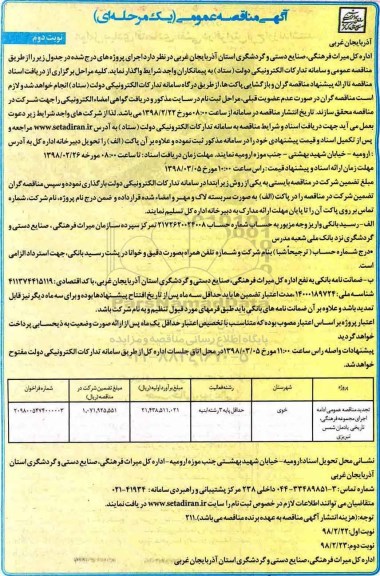 آگهی مناقصه عمومی (یک مرحله‌ای)
نوبت دوم
آذربایجان غربی
اداره کل میراث فرهنگی، صنایع دستی و گردشگری استان آذربایجان غربی در نظر دارد اجرای پروژه های درج شده در جدول زیر را از طریق
مناقصه عمومی و سامانه تدارکات الکترونیکی دولت (ستاد) به پیمانکاران واجد شرایط واگذار نماید. کلیه مراحل برگزاری از دریافت اسناد
مناقصه تا ارائه پیشنهاد مناقصه گران و بازگشایی پاکت ها، از طریق درگاه سامانه تدارکات الکترونیکی دولت (ستاد) انجام خواهد شد و لازم
است مناقصه گران در صورت عدم عضویت قبلی، مراحل ثبت نام در سایت مذکور و دریافت گواهی امضاء الکترونیکی را جهت شرکت در
مناقصه محقق سازند. تاریخ انتشار مناقصه در سامانه از ساعت ۰۸:۰۰ مورخ ۱۳۹۸/۲/۲۲ می باشد. لذا از شرکت های واجد شرایط زیر دعوت
بعمل می آید جهت دریافت اسناد و شرایط مناقصه به سامانه تدارکات الکترونیکی دولت (ستاد) به آدرس www.setadiran.ir مراجعه و
پس از تکمیل اسناد و قیمت پیشنهادی خود را در سامانه مذکور ثبت نموده و علاوه بر آن پاکت (الف) را تحویل دبیرخانه اداره کل به آدرس
: ارومیه - خیابان شهید بهشتی - جنب موزه ارومیه نمایند. مهلت زمان دریافت اسناد: تا ساعت ۰۸:۰۰ مورخه ۱۳۹۸/۰۲/۲۶
مهلت زمان ارائه اسناد و پیشنهاد قیمت: راس ساعت ۱۰:۰۰ مورخ ۱۳۹۸/۰۳/۰۵
مبلغ تضمین شرکت در مناقصه بایستی به یکی از روش زیر ابتدا در سامانه تدارکات الکترونیکی دولت بارگذاری نموده و سپس مناقصه گران
تضمین شرکت در مناقصه را در پاکت (الف) به صورت سربسته لاک و مهر و امضاء شده قرار داده و ضمن درج نام پروژه، نام شرکت، شماره
تماس بر روی پاکت آن را تا پایان مهلت ارائه مدارک به دبیرخانه اداره کل تسلیم نمایند.
الف - رسید بانکی واریز وجه مزبور به حساب شماره حساب ۲۱۷۲۶۲۰۲۴۰۰۸ تمرکز سپرده سازمان میراث فرهنگی، صنایع دستی و
گردشگری نزد بانک ملی شعبه مدرس
*درج شماره حساب (ترجیحاً شبا) بنام شرکت و شماره تلفن همراه بصورت دقیق و خوانا در پشت رسید بانکی، جهت استرداد الزامی
است.
ب- ضمانت نامه بانکی به نفع اداره کل میراث فرهنگی، صنایع دستی و گردشگری استان آذربایجان غربی، با کد اقتصادی: ۴۱۱۳۷۴۴۱۵۱۱۹
شناسه ملی: ۱۴۰۰۰۱۸۹۷۲۴ مدت اعتبار تضمین ها باید حداقل سه ماه پس از تاریخ افتتاح پیشنهادها بوده و برای سه ماه دیگر نیز قابل
تمدید باشد و علاوه بر آن ضمانت نامه های بانکی باید طبق فرمهای مورد قبول تنظیم و به نام شرکت باشد.
اعتبار پروژه بر اساس اعتبار مصوب بوده که متناسب با تخصیص اعتبار حداقل یک ماه پس از ارائه صورت وضعیت به ذیحسابی پرداخت
خواهد گردید
پیشنهادات واصله راس ساعت ۱۱:۰۰ مورخ ۱۳۹۸/۰۳/۰۵ در محل اتاق جلسات اداره کل از طریق سامانه تدارکات الکترونیکی دولت مفتوح
خواهد شد.
پروژه شهرستان رشته فعالیت مبلغ برآورد اولیه (ریال) مبلغ تضمین شرکت در مناقصه (ریال) شماره فراخوان
تجدید مناقصه عمومی ادامه اجرای مجموعه فرهنگی، تاریخی یادمان شمس تبریزی خوی حداقل پایه ۳ رشته ابنیه ۲۱,۴۳۸,۵۱۱,۰۲۱ ۱,۰۷۱,۹۲۵,۵۵۱ ۲۰۹۸۰۰۵۳۷۴۰۰۰۰۰۳
نشانی محل تحویل اسناد: ارومیه - خیابان شهید بهشتی جنب موزه ارومیه - اداره کل میراث فرهنگی، صنایع دستی و گردشگری استان
آذربایجان غربی
شماره تماس: ۳-۳۳۴۸۹۸۵۱-۰۴۴ داخلی ۲۳۸ مرکز پشتیبانی و راهبردی سامانه: ۴۱۹۳۴-۰۲۱
متقاضیان می توانند اطلاعات لازم در خصوص ثبت نام را از سایت www.setadiran.ir دریافت نمایند.
توجه: (هزینه انتشار آگهی مناقصه به عهده برنده مناقصه می باشد.) ۲۱۱
نوبت اول: ۹۸/۲/۲۲
نوبت دوم: ۹۸/۲/۲۳
اداره کل میراث فرهنگی، صنایع دستی و گردشگری استان آذربایجان غربی